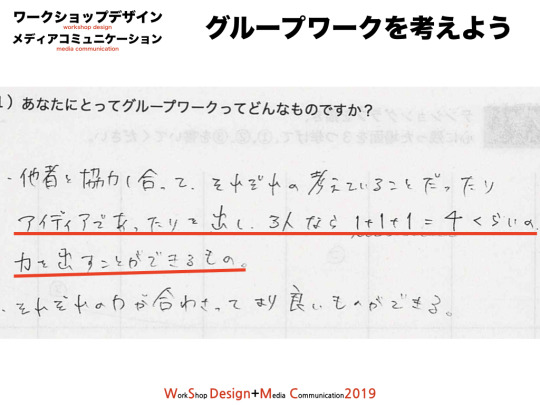 ワークショップデザイン
workshop design
メディアコミュニケーション
media communication
グループワークを考えよう
1）あなたにとってグループワークってどんなものですか？
・他者と協力し合って、それぞれの考えていることだったり
アイディアであったりを出し、3人なら 1+1+1=4 くらいの
力を出すことができるもの。
・それぞれの力が合わさってより良いものができる。
WorkShop Design+Media Communication2019